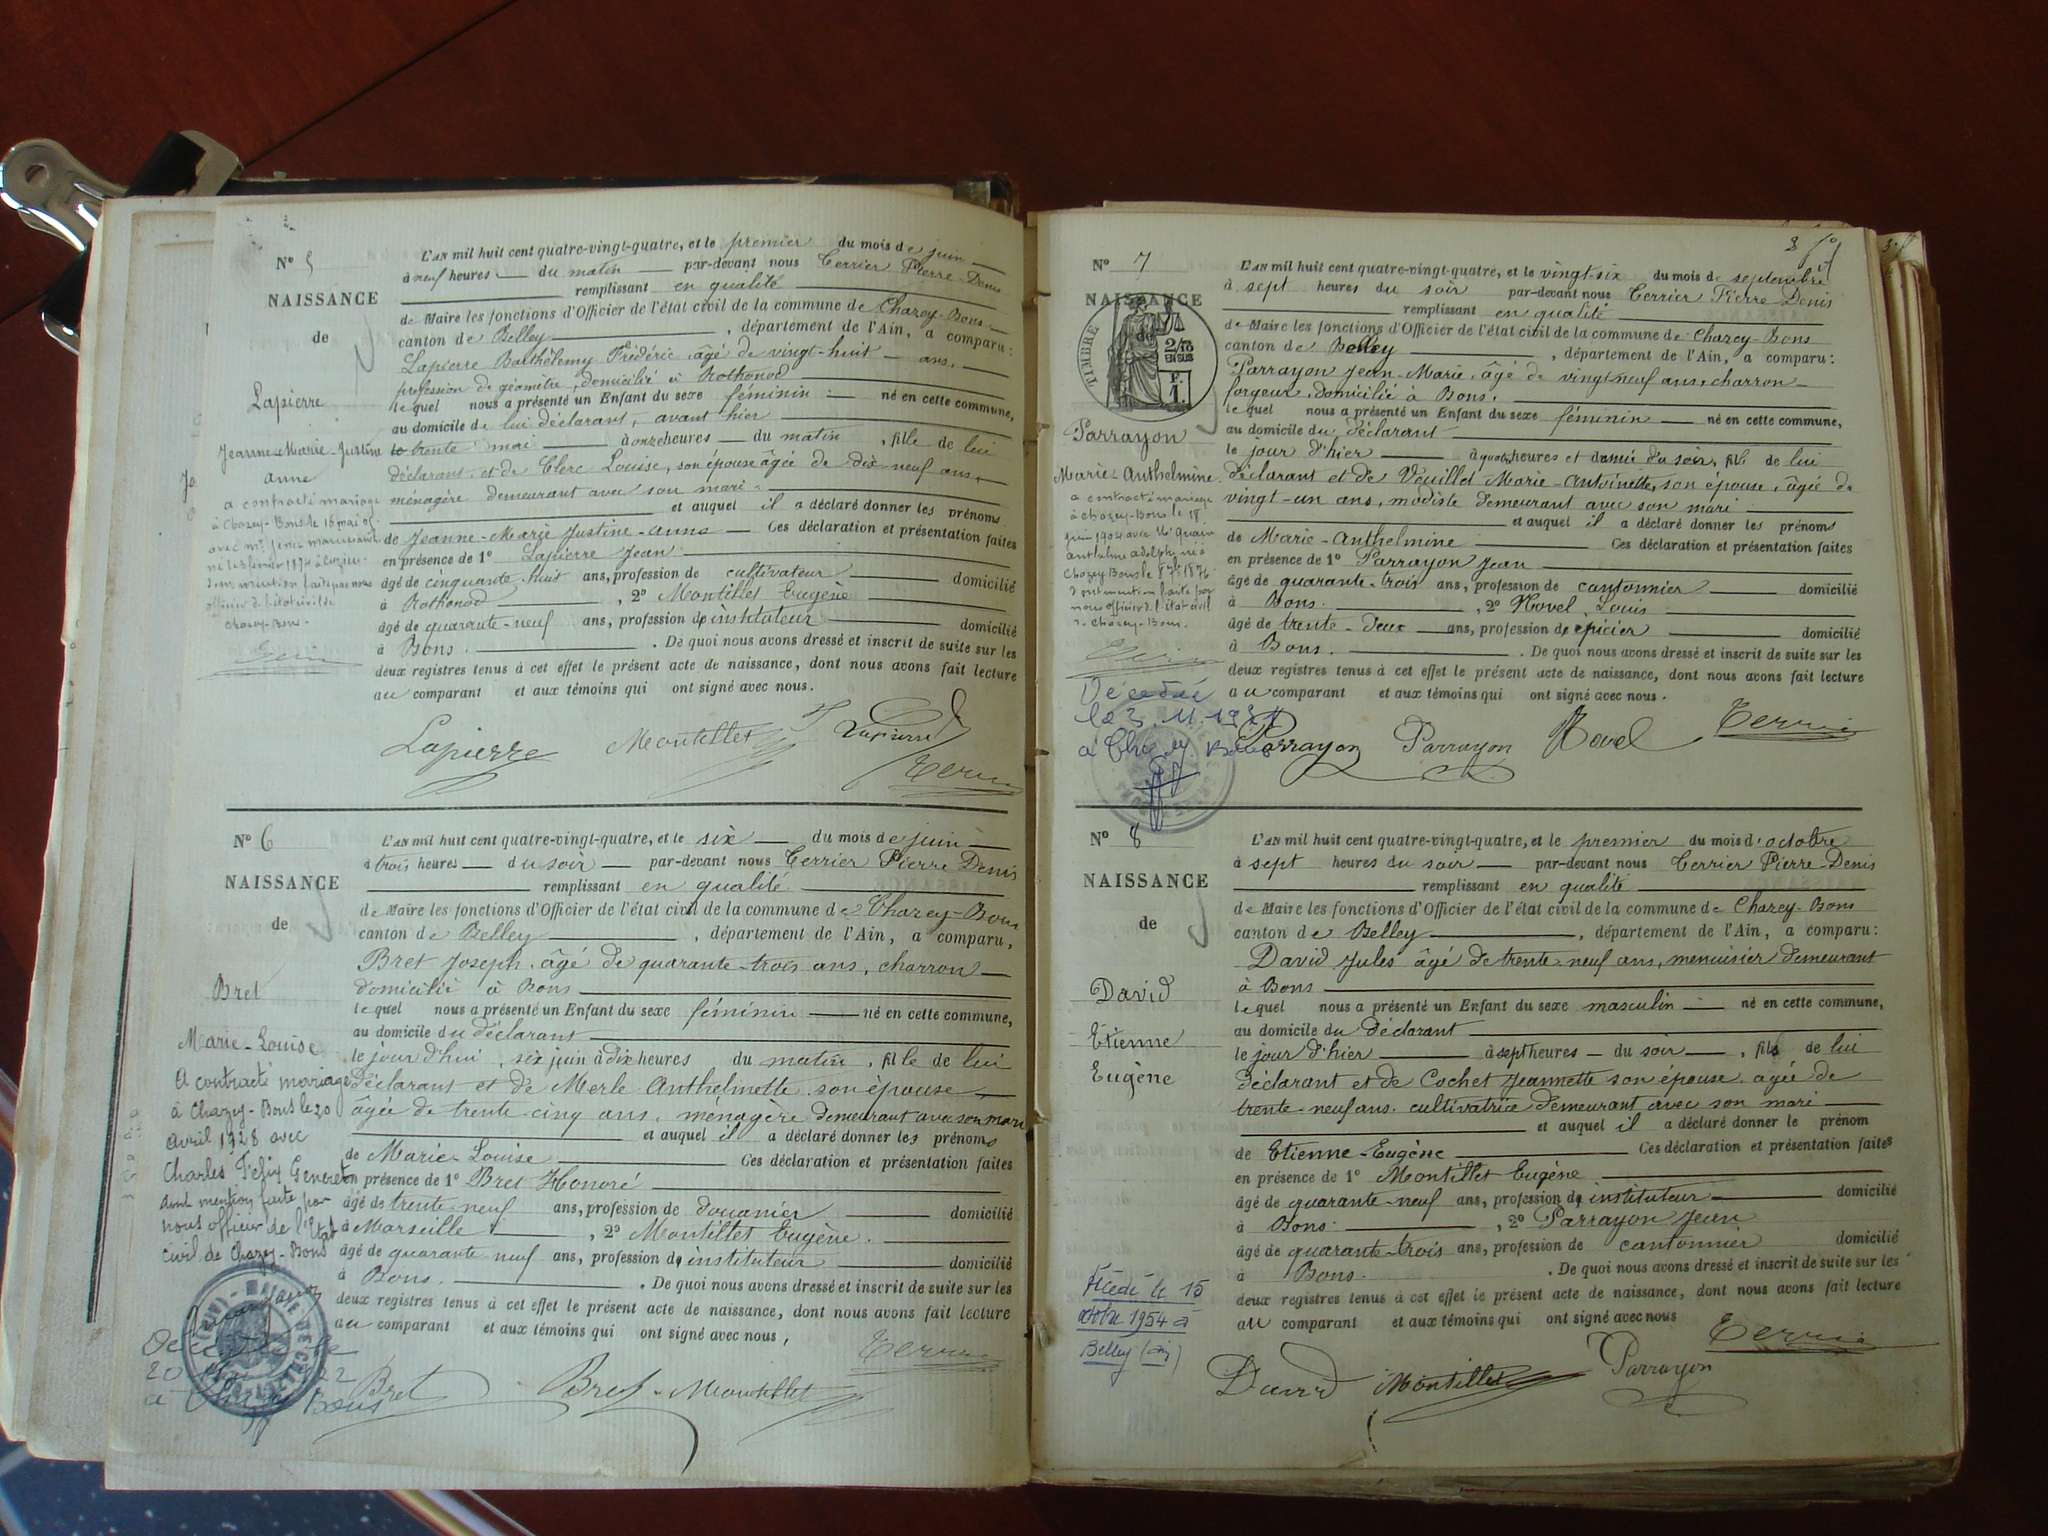 N° 5
NAISSANCE
de
Lapierre
Jeanne-Marie-Justine
anne
a contracté mariage
à Chazey-Bons le 16 mai
avec Mr
né le 3 février 1874 à
Dont mention faite par nous
officier de l'état civil de
Chazey-Bons.
L'AN mil huit cent quatre-vingt-quatre, et le premier du mois de juin
à neuf heures du matin par-devant nous Terrier Pierre-Denis
remplissant en qualité
de Maire les fonctions d'Officier de l'état civil de la commune de Chazey-Bons
canton de Belley, département de l'Ain, a comparu:
Lapierre Barthélemy Frédéric, âgé de vingt-huit ans,
profession de géomètre, domicilié à Rothonod
lequel nous a présenté un Enfant du sexe féminin né en cette commune,
au domicile de lui déclarant, avant hier
le trente mai à onze heures du matin, fille de lui
déclarant et de Clerc Louise, son épouse âgée de dix-neuf ans,
ménagère demeurant avec son mari
et auquel il a déclaré donner les prénoms
de Jeanne-Marie Justine-anne Ces déclaration et présentation faites
en présence de 1° Lapierre Jean
âgé de cinquante-huit ans, profession de cultivateur domicilié
à Rothonod, 2° Montillet Eugène
âgé de quarante-neuf ans, profession de instituteur domicilié
à Bons. De quoi nous avons dressé et inscrit de suite sur les
deux registres tenus à cet effet le présent acte de naissance, dont nous avons fait lecture
au comparant et aux témoins qui ont signé avec nous.
Lapierre Montillet Lapierre
Terrier
N° 6
NAISSANCE
de
Bret
Marie-Louise
A contracté mariage
à Chazey-Bons le 20
avril 1928 avec
Charles Félix Generet
dont mention faite par
nous officier de l'Etat
civil de Chazey-Bons
L'AN mil huit cent quatre-vingt-quatre, et le six du mois de juin
à trois heures du soir par-devant nous Terrier Pierre Denis
remplissant en qualité
de Maire les fonctions d'Officier de l'état civil de la commune de Chazey-Bons
canton de Belley, département de l'Ain, a comparu,
Bret Joseph, âgé de quarante-trois ans, charron
domicilié à Bons
lequel nous a présenté un Enfant du sexe féminin né en cette commune,
au domicile du déclarant
le jour d'hui, six juin à dix heures du matin, fille de lui
déclarant et de Merle Anthelmette son épouse
âgée de trente-cinq ans, ménagère demeurant avec son mari
et auquel il a déclaré donner les prénoms
de Marie-Louise Ces déclaration et présentation faites
en présence de 1° Bret Honoré
âgé de trente-neuf ans, profession de douanier domicilié
à Marseille, 2° Montillet Eugène.
âgé de quarante neuf ans, profession de instituteur domicilié
à Bons. De quoi nous avons dressé et inscrit de suite sur les
deux registres tenus à cet effet le présent acte de naissance, dont nous avons fait lecture
au comparant et aux témoins qui ont signé avec nous,
Terrier
Bret Bret Montillet
N° 7
NAISSANCE
de
TIMBRE
2/10
EN SUS
F.
1.
Parrayon
Marie-Anthelmine
a contracté mariage
à Chazey-Bons le 18
juin 1904 avec
anthelme adolphe né à
Chazey Bons le 8 7bre 1876
Dont mention faite par
nous officier de l'état civil
de Chazey-Bons.
Décédée
L'AN mil huit cent quatre-vingt-quatre, et le vingt-six du mois de septembre
à sept heures du soir par-devant nous Terrier Pierre-Denis
remplissant en qualité
de Maire les fonctions d'Officier de l'état civil de la commune de Chazey-Bons
canton de Belley, département de l'Ain, a comparu:
Parrayon Jean-Marie, âgé de vingt-neuf ans, charron
forgeur, domicilié à Bons,
lequel nous a présenté un Enfant du sexe féminin né en cette commune,
au domicile du déclarant
le jour d'hier à quatre heures et demie du soir, fille de lui
déclarant et de Veuillet Marie-Antoinette, son épouse, âgée de
vingt-un ans, modiste demeurant avec son mari
et auquel il a déclaré donner les prénoms
de Marie-Anthelmine Ces déclaration et présentation faites
en présence de 1° Parrayon Jean
âgé de quarante-trois ans, profession de cantonnier domicilié
à Bons., 2° Hovel Louis
âgé de trente-deux ans, profession de épicier domicilié
à Bons. De quoi nous avons dressé et inscrit de suite sur les
deux registres tenus à cet effet le présent acte de naissance, dont nous avons fait lecture
au comparant et aux témoins qui ont signé avec nous.
Parrayon Parrayon Hovel Terrier
N° 8
NAISSANCE
de
David
Etienne
Eugène
Décédé le 15
octobre 1954 à
Belley (Ain)
L'AN mil huit cent quatre-vingt-quatre, et le premier du mois d'octobre
à sept heures du soir par-devant nous Terrier Pierre-Denis
remplissant en qualité
de Maire les fonctions d'Officier de l'état civil de la commune de Chazey-Bons
canton de Belley, département de l'Ain, a comparu:
David Jules âgé de trente-neuf ans, menuisier demeurant
à Bons
lequel nous a présenté un Enfant du sexe masculin né en cette commune,
au domicile du déclarant
le jour d'hier à sept heures du soir, fils de lui
déclarant et de Cochet Jeannette son épouse âgée de
trente-neuf ans, cultivatrice demeurant avec son mari
et auquel il a déclaré donner le prénom
de Etienne-Eugène Ces déclaration et présentation faites
en présence de 1° Montillet Eugène
âgé de quarante-neuf ans, profession de instituteur domicilié
à Bons, 2° Parrayon Jean
âgé de quarante-trois ans, profession de cantonnier domicilié
à Bons. De quoi nous avons dressé et inscrit de suite sur les
deux registres tenus à cet effet le présent acte de naissance, dont nous avons fait lecture
au comparant et aux témoins qui ont signé avec nous
Terrier
David Montillet Parrayon